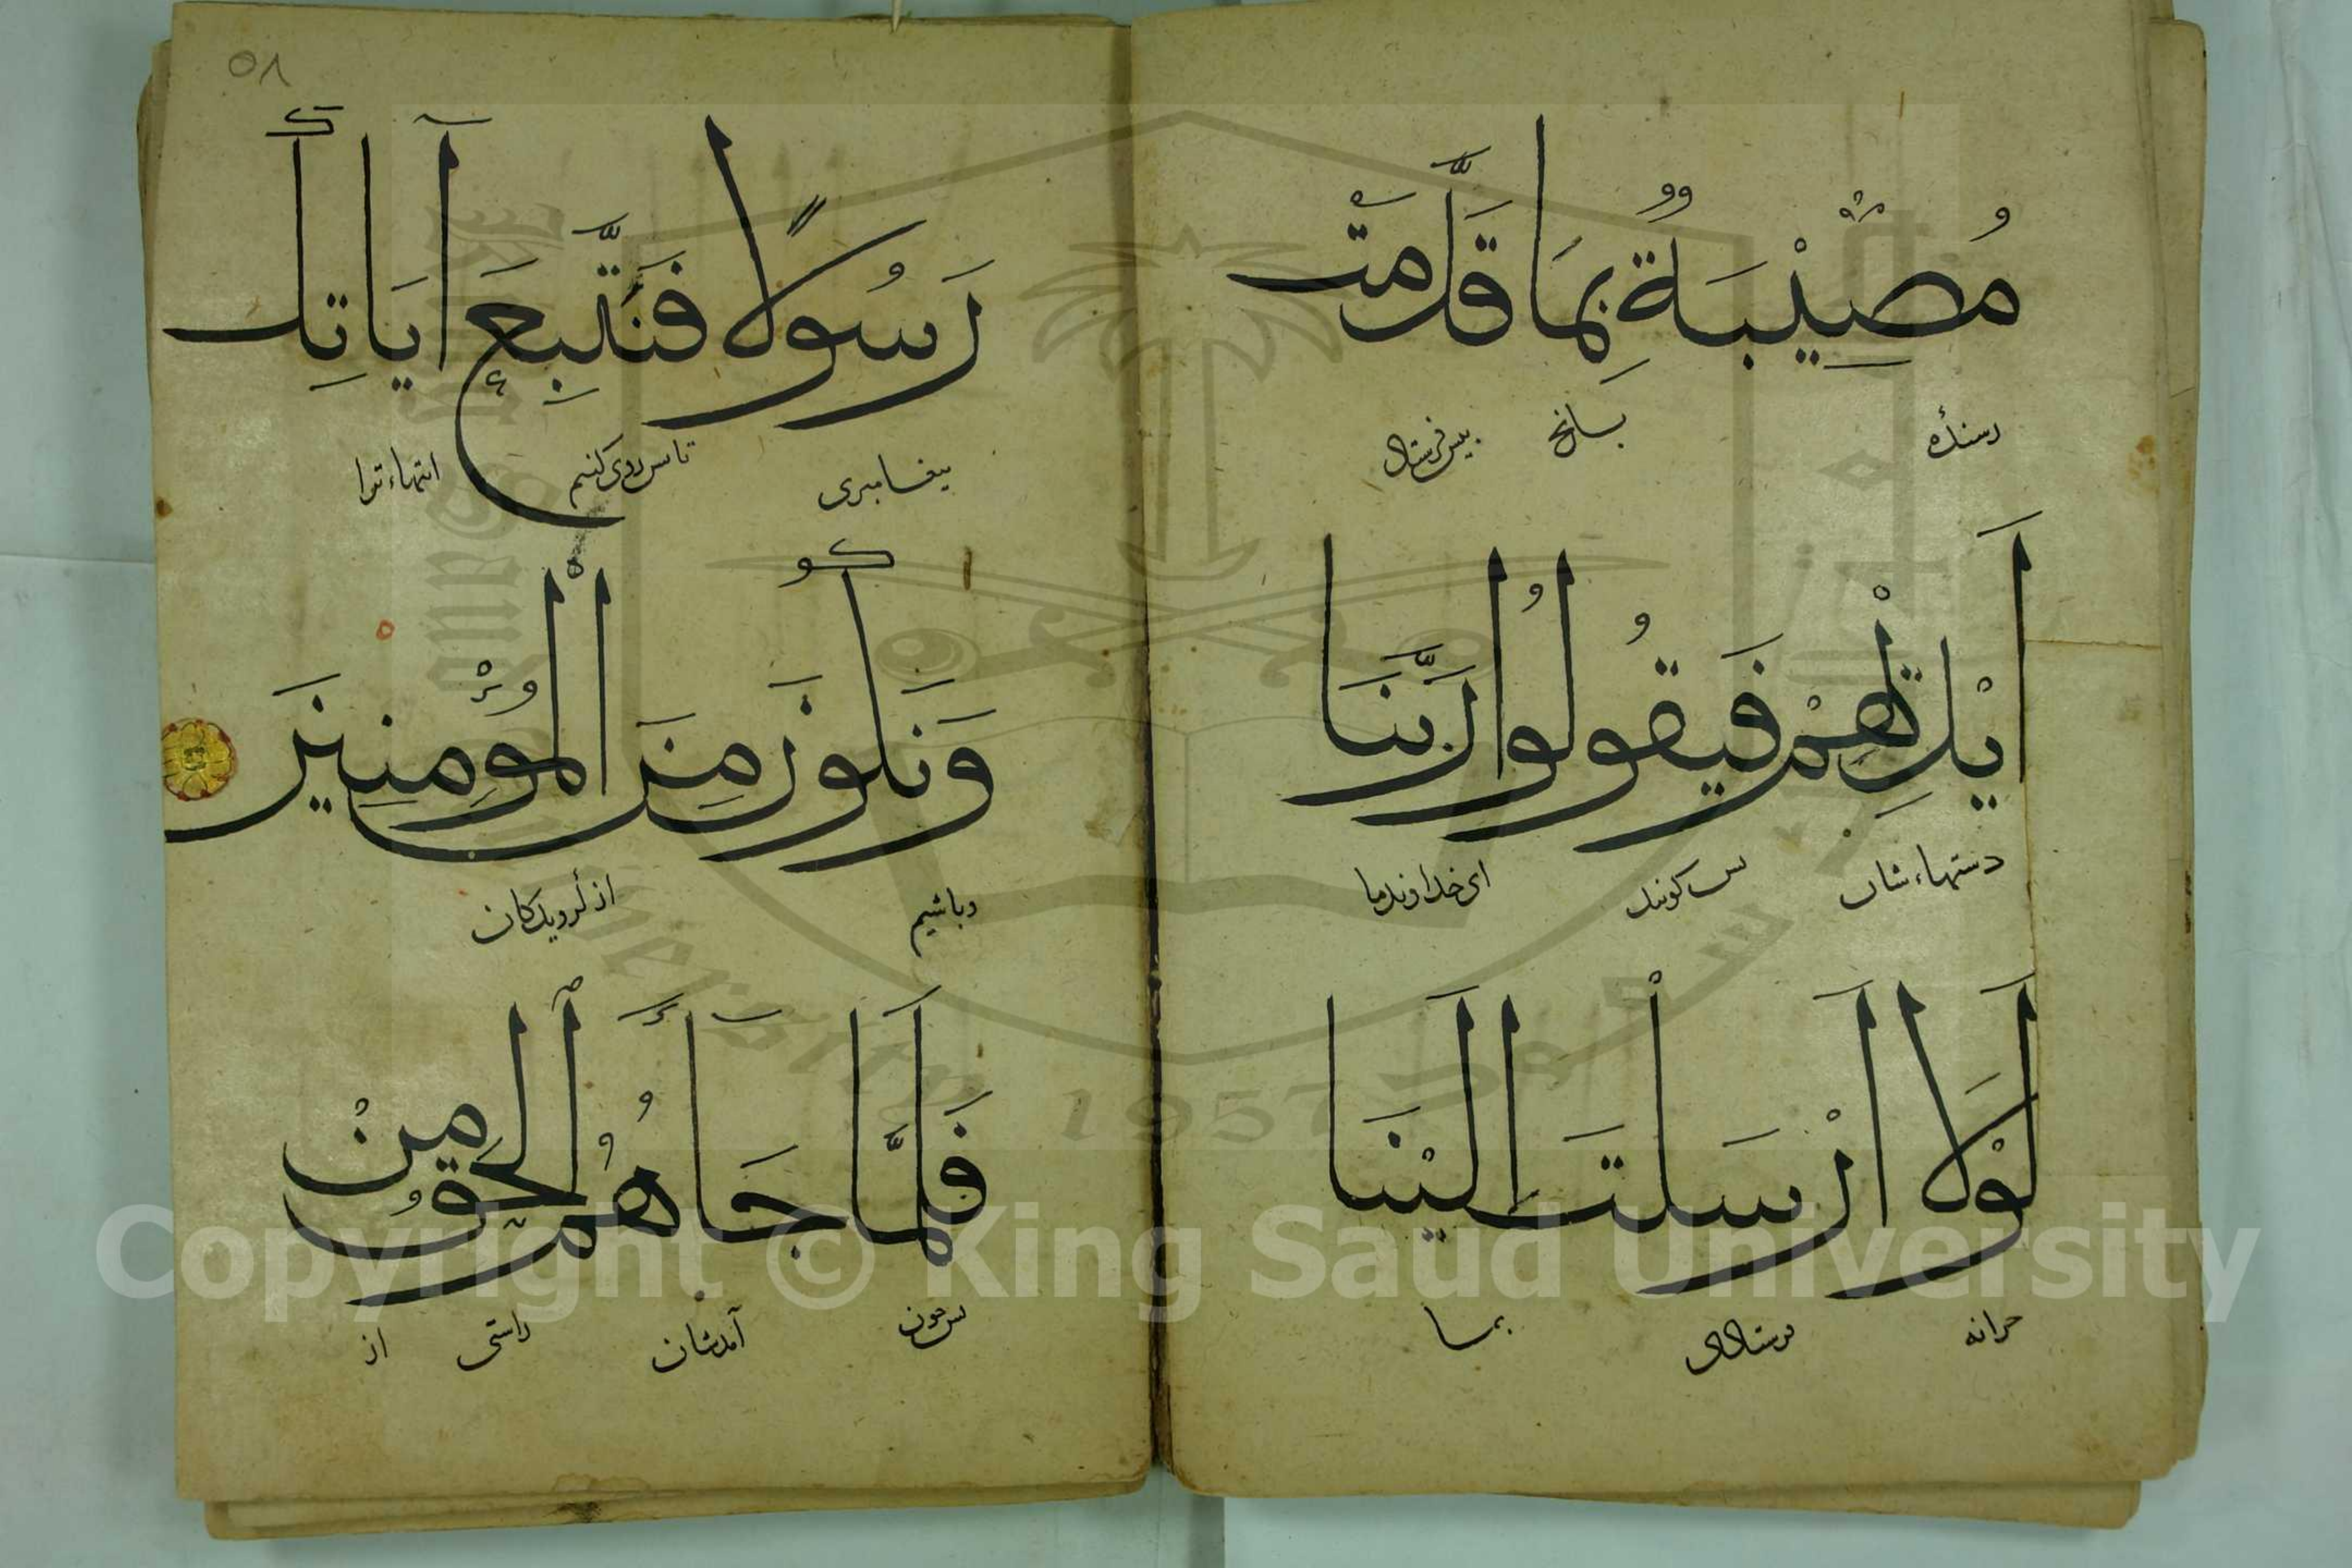 مُصِيْبَةٌ بِمَا قَدَّمَتْ
رسنده بسانچ پیش فرستاد
اَيْدِيْهِمْ فَيَقُولُوا رَبَّنَا
دستهاء شان پس کویند ای خداوند ما
لَوْلَا اَرْسَلْتَ اِلَيْنَا
چرانه فرستادی بما
٥٨
رَسُولًا فَنَتَّبِعَ آيَاتِكَ
پیغامبری تا پس روی کنیم ایتهاء ترا
وَنَكُونَ مِنَ الْمُؤْمِنِينَ
وباشیم از کرویدکان
فَلَمَّا جَاَهُمُ الْحَقُّ مِنْ
پس چون آمدشان راستی از
1957
Copyright © King Saud University